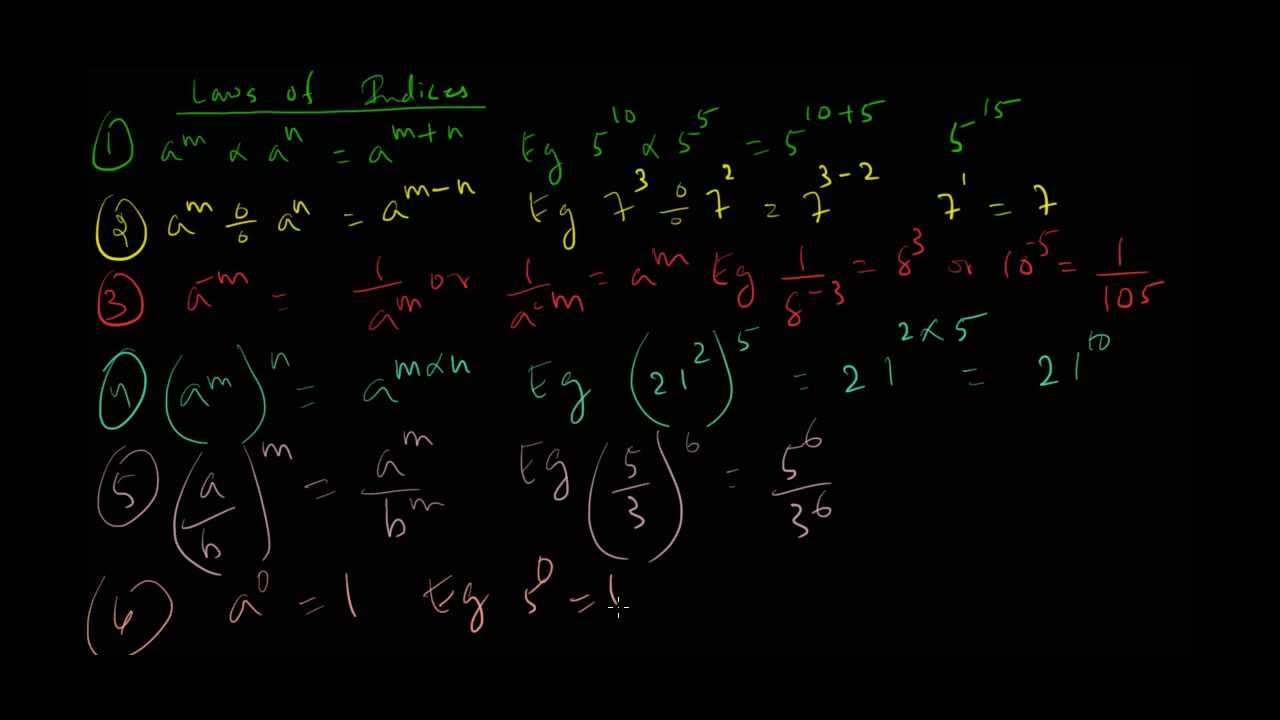 Laws of Indices
① aᵐ × aⁿ = aᵐ⁺ⁿ Eg 5¹⁰ × 5⁵ = 5¹⁰⁺⁵ 5¹⁵
② aᵐ ÷ aⁿ = aᵐ⁻ⁿ Eg 7³ ÷ 7² = 7³⁻² 7¹ = 7
③ a⁻ᵐ = 1/aᵐ or 1/a⁻ᵐ = aᵐ Eg 1/8⁻³ = 8³ or 10⁻⁵ = 1/105
④ (aᵐ)ⁿ = a^(m×n) Eg (21²)⁵ = 21^(2×5) = 21¹⁰
⑤ (a/b)ᵐ = aᵐ/bᵐ Eg (5/3)⁶ = 5⁶/3⁶
⑥ a⁰ = 1 Eg 5⁰ = 1